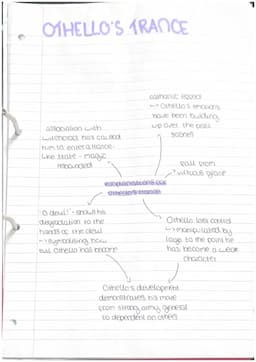 OTHELLO'S TRANCE
cathartic effect
→ Othello's emotions
have been building
up over the past
scenes
association with
witchcraft has caused
him to enter a trance-
like state - magic
rebounded
fall from
virtuous grace
explanations for
Othello's trance
'O devil!' - shows his
degradation to the
hands of the devil
→ symbolising how
evil Othello has become
Othello lost control
→ manipulated by
Iago to the point he
has become a weak
character
Othello's development
demonstrates his move
from strong army general
to dependent on others